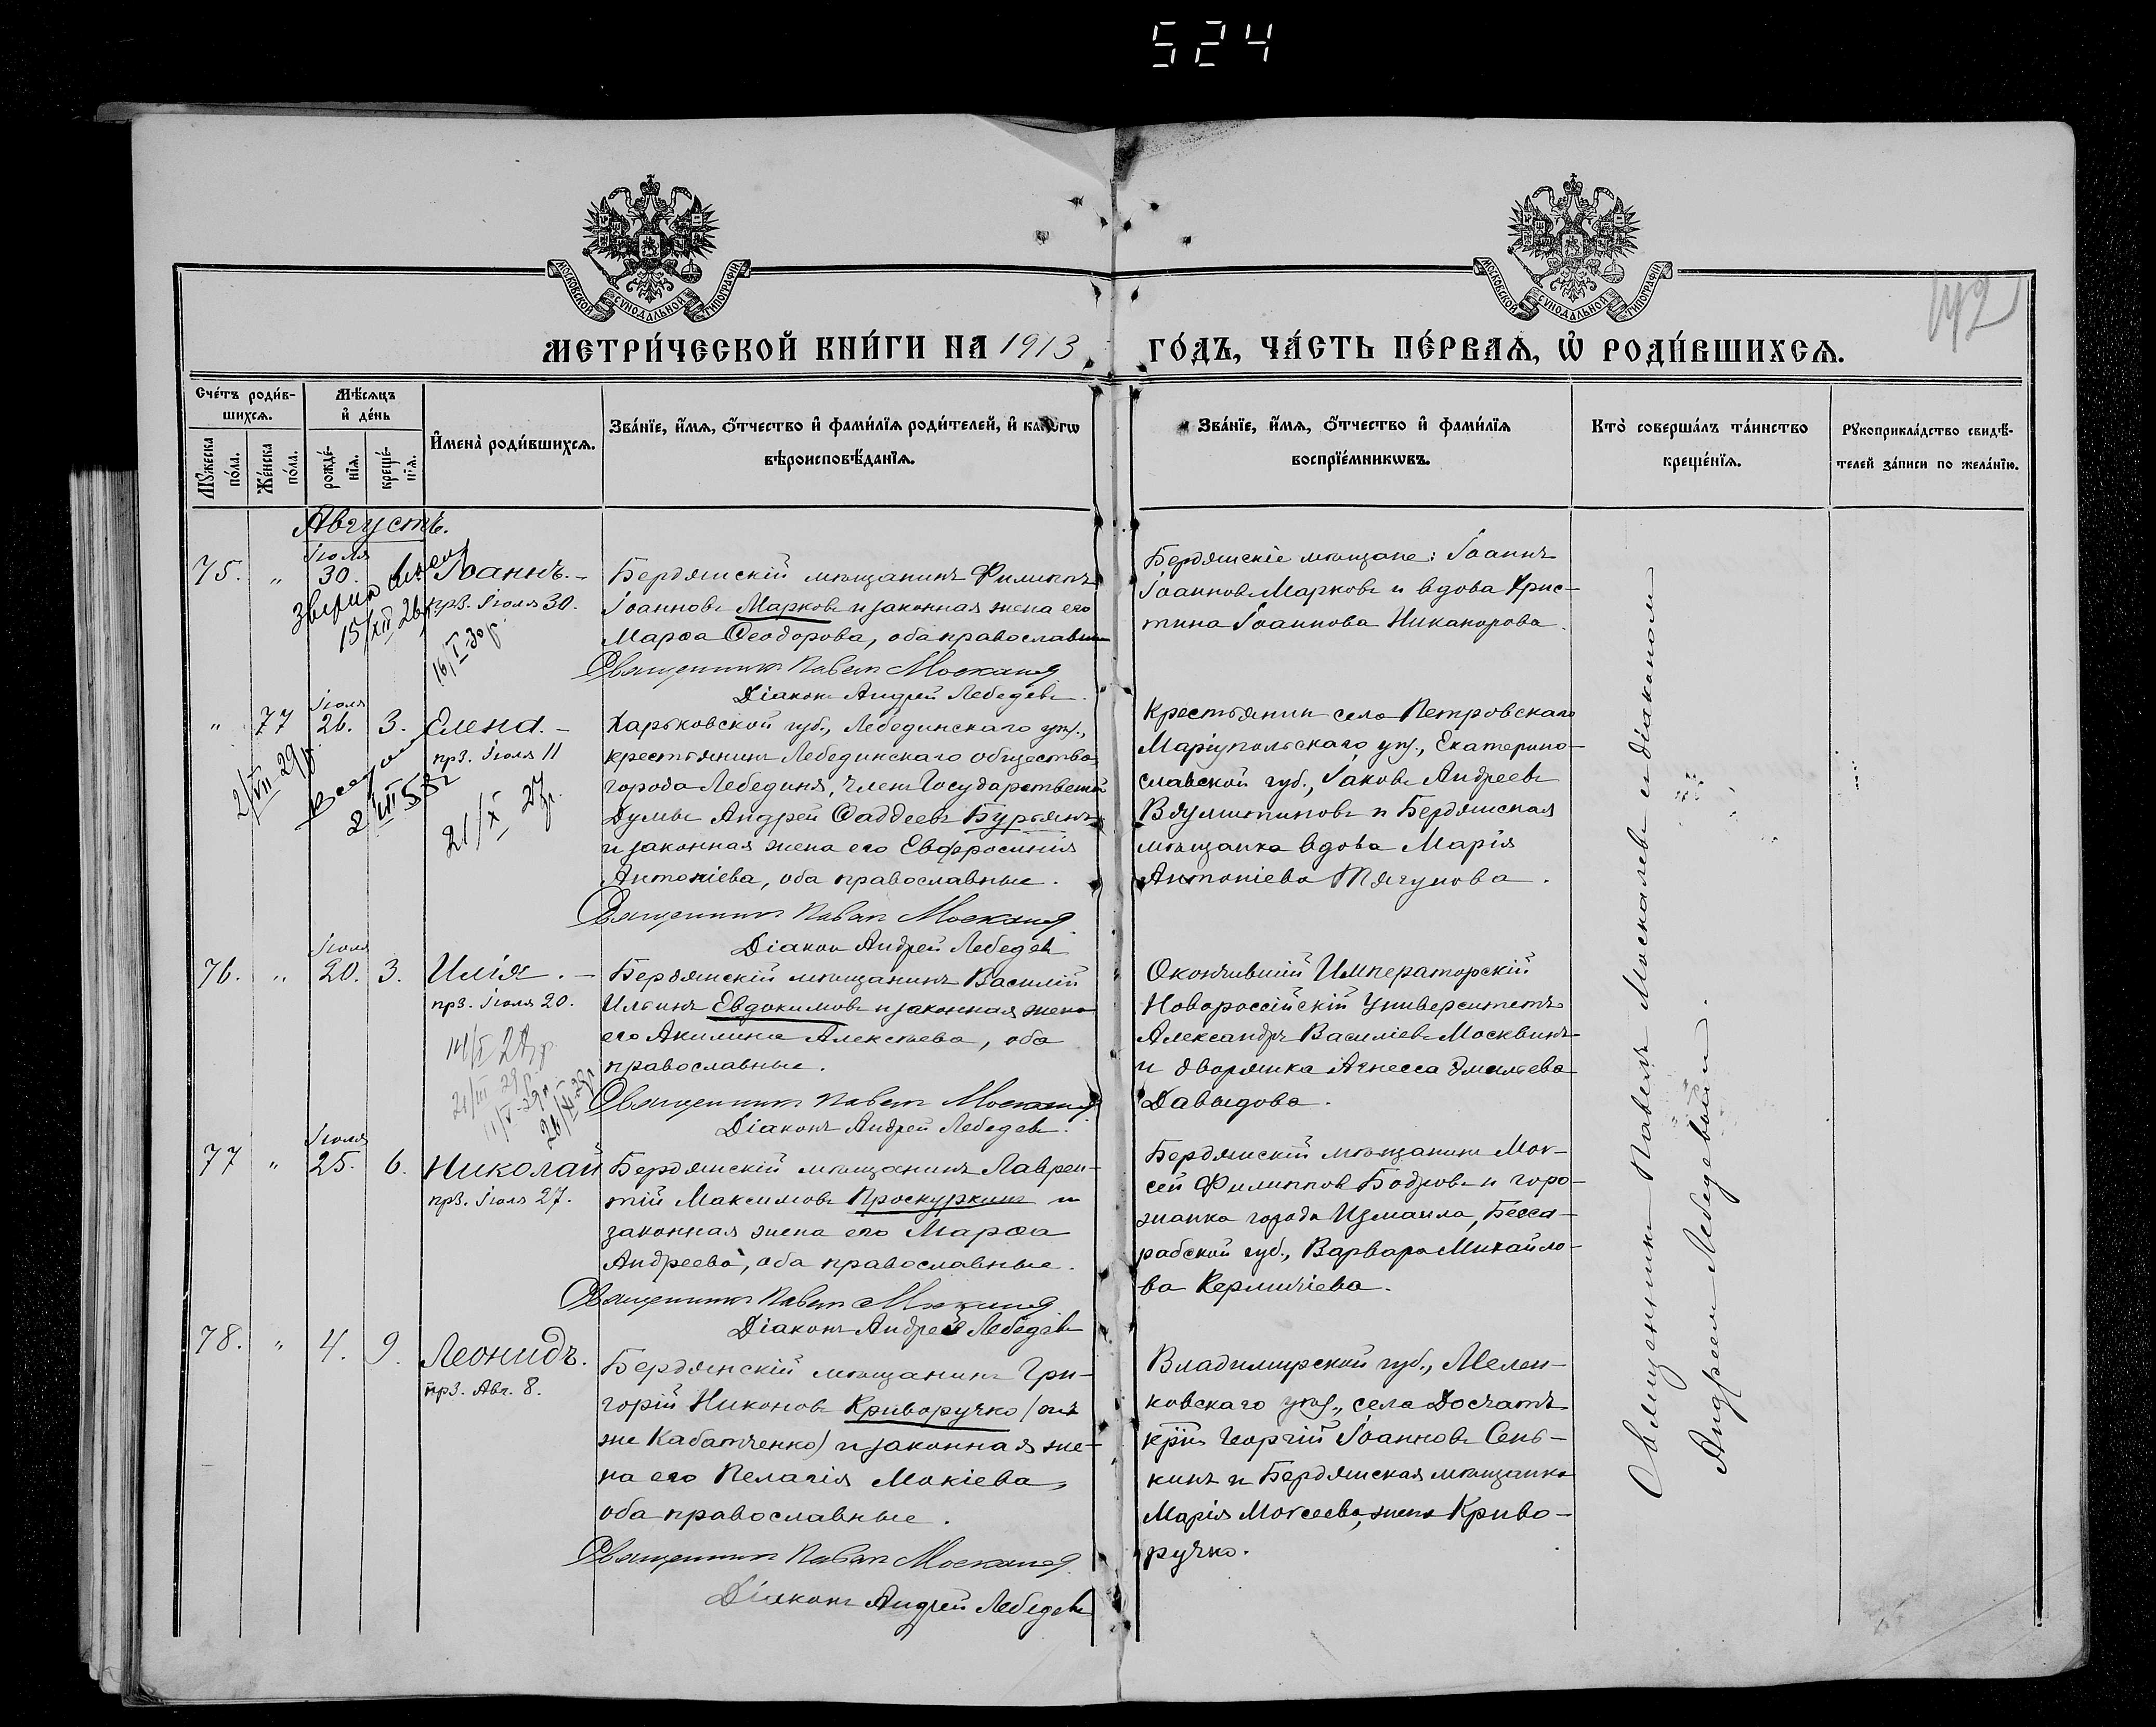 524
МОСКОВСКОЙ СѴНОДАЛЬНОЙ ТИПОГРАФІИ
МОСКОВСКОЙ СѴНОДАЛЬНОЙ ТИПОГРАФІИ
142
МЕТРИ́ЧЕСКОЙ КНИ́ГИ НА 1913 ГО́ДЪ, ЧА́СТЬ ПЕ́РВАѦ, Ѽ РОДИ́ВШИХСѦ.
Сче́тъ роди́в-
шихсѧ.
Мѣ́сѧцъ
и҆ де́нь
Мꙋ́жеска
по́ла.
Же́нска
по́ла.
рожде́-
нїѧ.
креще́-
нїѧ.
И҆мена̀ роди́вшихсѧ.
Зва́нїе, и҆́мѧ, ѻ҆́тчество и҆ фами́лїѧ роди́телей, и҆ како́гѡ
вѣроисповѣ́данїѧ.
Зва́нїе, и҆́мѧ, ѻ҆́тчество и҆ фами́лїѧ
воспрїе́мникѡвъ.
Кто̀ соверша́лъ та́инство
креще́нїѧ.
Рꙋкоприкла́дство свидѣ́-
телей за́писи по жела́нїю.
Августъ.
75. " Іюля 30. Іоаннъ.
прз. Іюля 30.
15/XII 26
16/I 30 г.
Бердянскій мѣщанинъ Филиппъ
Іоанновъ Марковъ и законная жена его
Марѳа Ѳеодорова, оба православные
Священникъ Павелъ Москалев
Діаконъ Андрей Лебедевъ.
Бердянскіе мѣщане: Іоаннъ
Іоанновъ Марковъ и вдова Хрис-
тина Іоаннова Никанорова.
" 77 Іюля 26. 3. Елена.
прз. Іюля 11
2/VII-29 г.
21/X 27 г.
Харьковской губ., Лебединскаго уѣз.,
крестьянинъ Лебединскаго общества
города Лебедина, членъ Государственной
Думы Андрей Ѳаддеевъ Бурьянъ
и законная жена его Евфросинія
Антоніева, оба православные.
Священникъ Павел Москалев
Діакон Андрей Лебедев
Крестьянин села Петровскаго
Маріупольскаго уѣз., Екатерино-
славской губ., Іаковъ Андреевъ
и Бердянская
мѣщанка вдова Марія
Антоніева Тягунова.
76. " Іюля 20. 3. Илія.
прз. Іюля 20.
14/V 28 г.
21/III 29 г.
Бердянскій мѣщанинъ Василій
Ильинъ Евдокимовъ и законная жена
его Акилина Алексѣева, оба
православные.
Священникъ Павелъ Москалев
Діаконъ Андрей Лебедевъ.
Окончившій Императорскій
Новороссійскій Университетъ
Александръ Василіевъ Москвинъ
и дворянка Агнесса Эмильева
Давыдова.
77 " Іюля 25. 6. Николай
прз. Іюля 27.
Бердянскій мѣщанинъ Лаврен-
тій Максимовъ Проскуркинъ и
законная жена его Марѳа
Андреева, оба православные.
Священникъ Павелъ Москалев
Діаконъ Андрей Лебедевъ
Бердянскій мѣщанинъ Мои-
сей Филиппов Бодровъ и горо-
жанка города Измаила, Бесса-
рабской губ., Варвара Михайло-
ва Кермичіева.
78. " 4. 9. Леонидъ.
прз. Авг. 8.
Бердянскій мѣщанинъ Гри-
горій Никоновъ Криворучко (онъ
же Кабатченко) и законная же-
на его Пелагія Мокіева,
оба православные.
Священникъ Павел Москалев
Діаконъ Андрей Лебедевъ
Владимирской губ., Мелен-
ковскаго уѣз., села Досчатъ
кр̃нъ Георгій Іоанновъ Сень-
кинъ и Бердянская мѣщанка
Марія Моисеева, жена Криво-
ручко.
Священникъ Павелъ Москалевъ и діакономъ
Андреемъ Лебедевымъ.